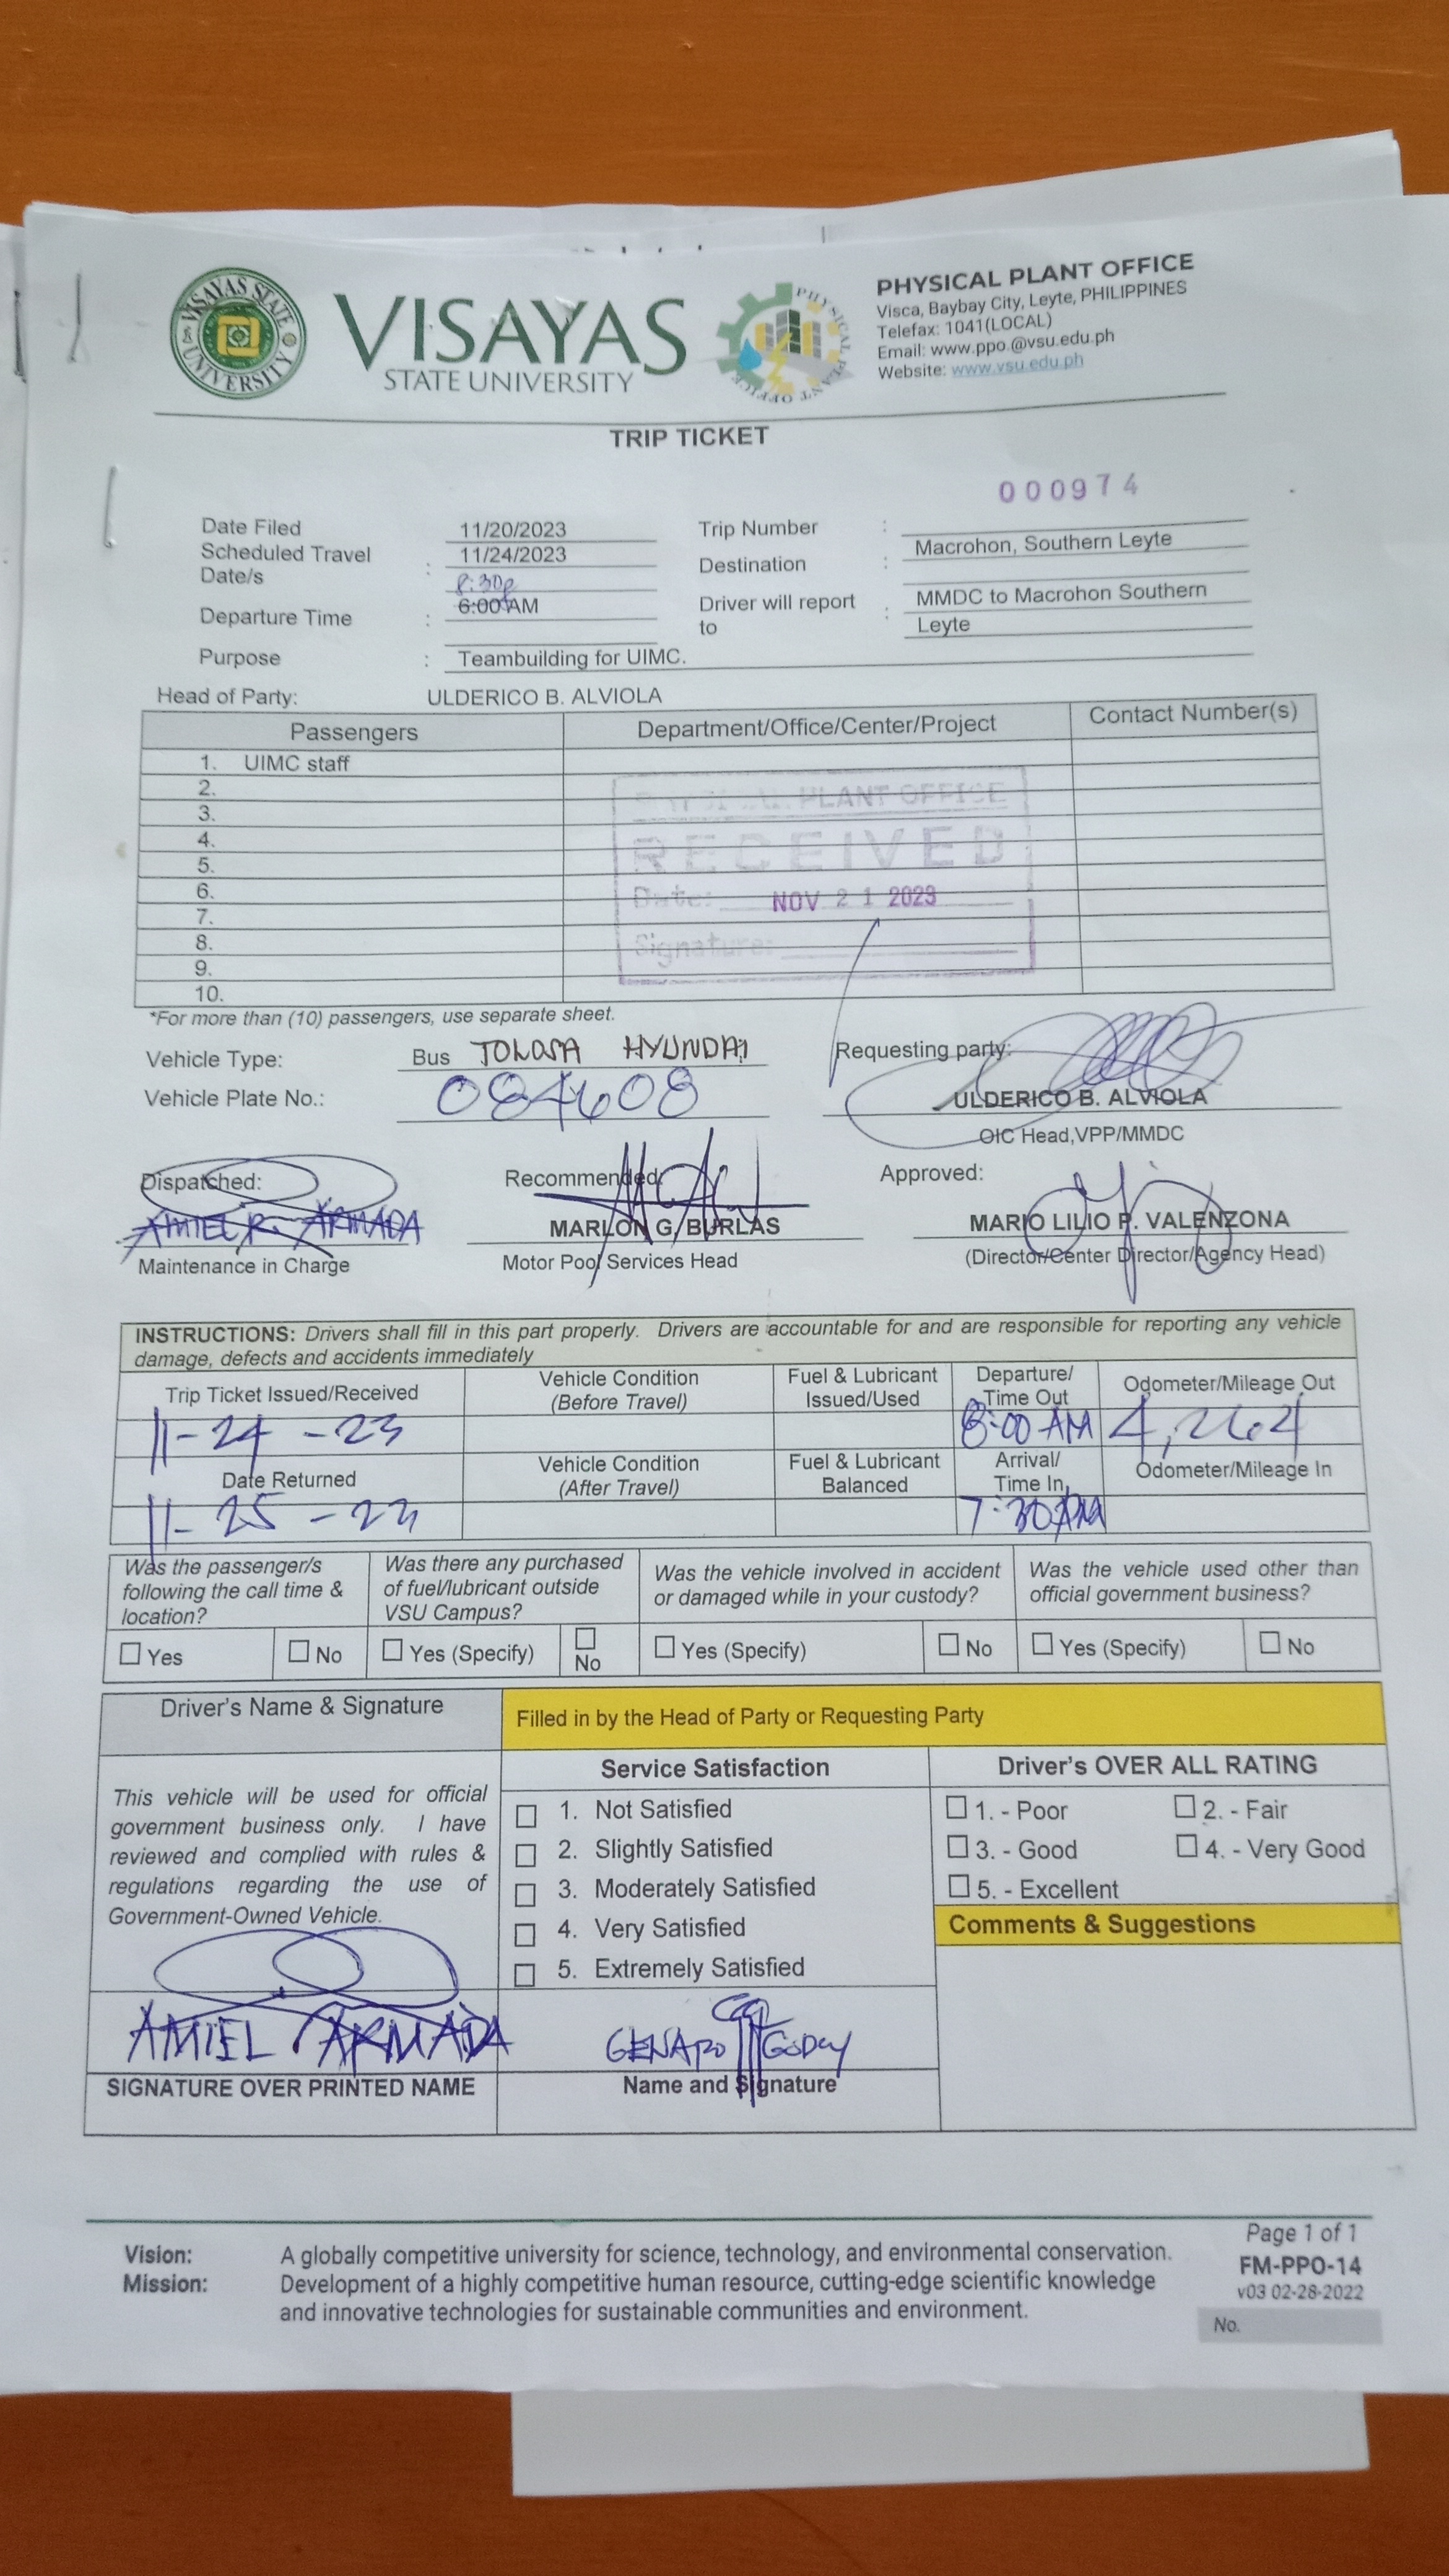 VISAYAS STATE UNIVERSITY
VISAYAS
STATE UNIVERSITY
PHYSICAL PLANT OFFICE
PHYSICAL PLANT OFFICE
Visca, Baybay City, Leyte, PHILIPPINES
Telefax: 1041(LOCAL)
Email: www.ppo.@vsu.edu.ph
Website: www.vsu.edu.ph
TRIP TICKET
000974
Date Filed 11/20/2023 Trip Number :
Scheduled Travel Date/s : 11/24/2023 Destination : Macrohon, Southern Leyte
8:30p
Departure Time : 6:00 AM Driver will report to : MMDC to Macrohon Southern Leyte
Purpose : Teambuilding for UIMC.
Head of Party: ULDERICO B. ALVIOLA
Passengers Department/Office/Center/Project Contact Number(s)
1. UIMC staff
2.
3.
4.
5.
6.
7.
8.
9.
10.
PLANT OFFICE
RECEIVED
Date: NOV 21 2023
Signature:
*For more than (10) passengers, use separate sheet.
Vehicle Type: Bus TOLOSA HYUNDAI Requesting party:
Vehicle Plate No.: 084608 ULDERICO B. ALVIOLA
OIC Head,VPP/MMDC
Dispatched: Recommended: Approved:
AMIEL R. ARMADA MARLON G. BURLAS MARIO LILIO P. VALENZONA
Maintenance in Charge Motor Pool Services Head (Director/Center Director/Agency Head)
INSTRUCTIONS: Drivers shall fill in this part properly. Drivers are accountable for and are responsible for reporting any vehicle
damage, defects and accidents immediately
Trip Ticket Issued/Received Vehicle Condition (Before Travel) Fuel & Lubricant Issued/Used Departure/ Time Out Odometer/Mileage Out
11-24-23 8:00 AM 4,264
Date Returned Vehicle Condition (After Travel) Fuel & Lubricant Balanced Arrival/ Time In Odometer/Mileage In
11-25-23 7:30
Was the passenger/s following the call time & location? Was there any purchased of fuel/lubricant outside VSU Campus? Was the vehicle involved in accident or damaged while in your custody? Was the vehicle used other than official government business?
Yes No Yes (Specify) No Yes (Specify) No Yes (Specify) No
Driver's Name & Signature Filled in by the Head of Party or Requesting Party
Service Satisfaction Driver's OVER ALL RATING
This vehicle will be used for official
government business only. I have
reviewed and complied with rules &
regulations regarding the use of
Government-Owned Vehicle.
1. Not Satisfied
2. Slightly Satisfied
3. Moderately Satisfied
4. Very Satisfied
5. Extremely Satisfied
1. - Poor 2. - Fair
3. - Good 4. - Very Good
5. - Excellent
Comments & Suggestions
AMIEL ARMADA GENARO Godoy
SIGNATURE OVER PRINTED NAME Name and Signature
Vision: A globally competitive university for science, technology, and environmental conservation.
Mission: Development of a highly competitive human resource, cutting-edge scientific knowledge
and innovative technologies for sustainable communities and environment.
Page 1 of 1
FM-PPO-14
v03 02-28-2022
No.